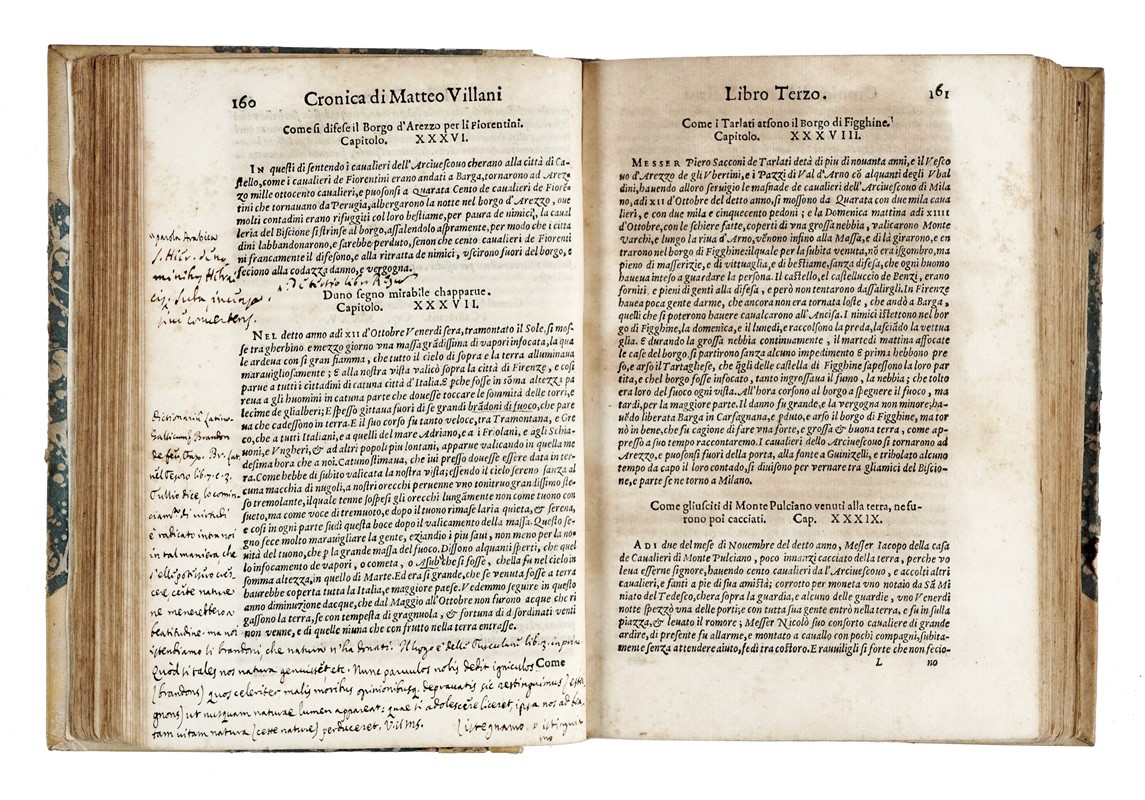 160 Cronica di Matteo Villani
Come si difese il Borgo d'Arezzo per li Fiorentini.
Capitolo. XXXVI.
IN questi dì sentendo i caualieri dell'Arciuescouo cherano alla città di Ca-
stello, come i caualieri de Fiorentini erano andati a Barga, tornarono ad Arez-
zo mille ottocento caualieri, e puosonsi a Quarata Cento de caualieri de Fiorē-
tini che tornauano da Perugia, albergarono la notte nel borgo d'Arezzo, oue
molti contadini erano rifuggiti col loro bestiame, per paura de nimici, la caual
leria del Biscione si strinse al borgo, assalendolo aspramente, per modo che i citta
dini labbandonarono, e sarebbe perduto, senon che cento caualieri de Fiorenti
ni francamente il difesono, e alla ritratta de nimici, vscirono fuori del borgo, e
feciono alla codazza danno, e vergogna.
Duno segno mirabile chapparue.
Capitolo. XXXVII.
NEL detto anno adi XII d'Ottobre Venerdi sera, tramontato il Sole, si mos-
se tra gherbino e mezzo giorno vna massa grādissima di vapori infocata, la qua
le ardea con si gran fiamma, che tutto il cielo di sopra e la terra alluminaua
marauigliosamente; & alla nostra vista valicò sopra la città di Firenze, e così
parue a tutti i cittadini di catuna città d'Italia. & pche fosse in sōma altezza pa
reua a gli huomini in catuna parte che douesse toccare le sommità delle torri, e
lecime de glialberi; E spesso gittaua fuori di se grandi brādoni di fuoco, che pare
ua che cadessono in terra. E il suo corso fu tanto veloce, tra Tramontana, e Gre
co, che a tutti Italiani, e a quelli del mare Adriano, e a i Friolani, e agli Schia-
uoni, e Vngheri, & ad altri popoli piu lontani, apparue valicando in quella me
desima hora che a noi. Catuno stimaua, che iui presso douesse essere data in ter-
ra. Come hebbe di subito valicata la nostra vista; essendo il cielo sereno sanza al
cuna macchia di nugoli, a nostri orecchi peruenne vno tonitruo grandissimo ste-
so tremolante, il quale tenne sospesi gli orecchi lungāmente non come tuono con
sueto, ma come voce di tremuoto, e dopo il tuono rimase l'aria quieta, & serena,
e così in ogni parte sudì questa boce dopo il valicamento della massa. Questo se-
gno fece molto marauigliare la gente, eziandio i piu saui, non meno per la no-
uità del tuono, che p la grande massa del fuoco. Dissono alquanti sperti, che quel
lo infocamento de vapori, o cometa, o Asub che si fosse, chella fu nel cielo in
somma altezza, in quello di Marte. Ed era si grande, che se venuta fosse a terra
haurebbe coperta tutta la Italia, e maggiore paese. Vedemmo seguire in questo
anno diminuzione dacque, che dal Maggio all'Ottobre non furono acque che ri
gassono la terra, se con tempesta di gragnuola, & fortuna di sfordinati venti
non venne, e di quelle niuna che con frutto nella terra entrasse.
Come
parola Arabica
Dictionario Latino-
Gallicum: Brandon
de feu, Fax.
nel Tesoro lib. 7. c. 3.
Tullio dice, lo comin-
ciamto di virtudi
è radicato intra noi
in tal maniera che
ne menerebbero a
beatitudine. ma noi
istendiamo li brandoni, che natura n'ha donati. Il luogo è delle Tusculane lib. 3. in prin.
Quod si tales nos natura genuisset etc. Nunc parvulos nobis dedit igniculos
(brandons) quos celeriter malis moribus opinionibusq. depravatis sic restinguimus
ut nusquam naturae lumen appareat: quae si adolescere liceret, ipsa nos ad bea
tam vitam natura (ceste nature) perduceret.
Libro Terzo. 161
Come i Tarlati arsono il Borgo di Figghine.
Capitolo. XXXVIII.
MESSER Piero Sacconi de Tarlati detà di piu di nouanta anni, e il Vesco
uo d'Arezzo de gli Vbertini, e i Pazzi di Val d'Arno cō alquanti degli Vbal
dini, hauendo alloro seruigio le masnade de caualieri dell'Arciuescouo di Mila
no, adi XII d'Ottobre del detto anno, si mossono da Quarata con due mila caua
lieri, e con due mila e cinquecento pedoni; e la Domenica mattina adi XIIII
d'Ottobre, con le schiere fatte, coperti di vna grossa nebbia, valicarono Monte
Varchi, e lungo la riua d'Arno, vēnono infino alla Massa, e di là girarono, e en
trarono nel borgo di Figghine: ilquale per la subita venuta, nō era isgombro, ma
pieno di masserizie, e di vittuaglia, e di bestiame, sanza difesa, che ogni huomo
haueua inteso a guardare la persona. Il castello, el castelluccio de Benzi, erano
forniti e pieni di genti alla difesa, e però non tentarono dassalirgli. In Firenze
hauea poca gente darme, che ancora non era tornata loste, che andò a Barga,
quelli che si poterono hauere caualcarono all'Ancisa. I nimici istettono nel bor
go di Figghine, la domenica, e il lunedì, e raccolsono la preda, lasciādo la vettua
glia. E durando la grossa nebbia continuamente, il martedì mattina affocate
le case del borgo, si partirono sanza alcuno impedimento & prima hebbono pre
so, e arso il Tartagliese, che q̄gli delle castella di Figghine sapessono la loro par
tita, e chel borgo fosse infocato, tanto ingrossaua il fumo, la nebbia; che tolto
era loro del fuoco ogni vista. All'hora corsono al borgo a spegnere il fuoco, ma
tardi, per la maggiore parte. Il danno fu grande, e la vergogna non minore; ha-
uēdo liberata Barga in Carfagnana, e pduto, e arso il borgo di Figghine, ma tor
nò in bene, che fu cagione di fare vna forte, e grossa & buona terra, come ap-
presso a suo tempo raccontaremo. I caualieri dello Arciuescouo si tornarono ad
Arezzo, e puosonsi fuori della porta, alla fonte a Guinizelli, e tribolato alcuno
tempo da capo il loro contado, si diuisono per vernare tra gliamici del Biscio-
ne, e parte se ne torno a Milano.
Come gliusciti di Monte Pulciano venuti alla terra, ne fu-
rono poi cacciati. Cap. XXXIX.
ADI due del mese di Nouembre del detto anno, Messer Iacopo della casa
de Caualieri di Monte Pulciano, poco innanzi cacciato della terra, perche vo
leua esserne signore, hauendo cento caualieri da l'Arciuescono, e accolti altri
caualieri, e fanti a pie di sua amistà; corrotto per moneta vno notaio da Sā Mi
niato del Tedesco, chera sopra la guardia, e alcuno delle guardie, vno Venerdi
notte spezzò vna delle porti; e con tutta sua gente entrò nella terra, e fu in sulla
piazza, & leuato il romore; Messer Nicolò suo consorto caualiere di grande
ardire, di presente fu allarme, e montato a cauallo con pochi compagni, subita-
mente senza attendere aiuto, fedì tra costoro. E rauuiligli si forte che non fecio-
L no